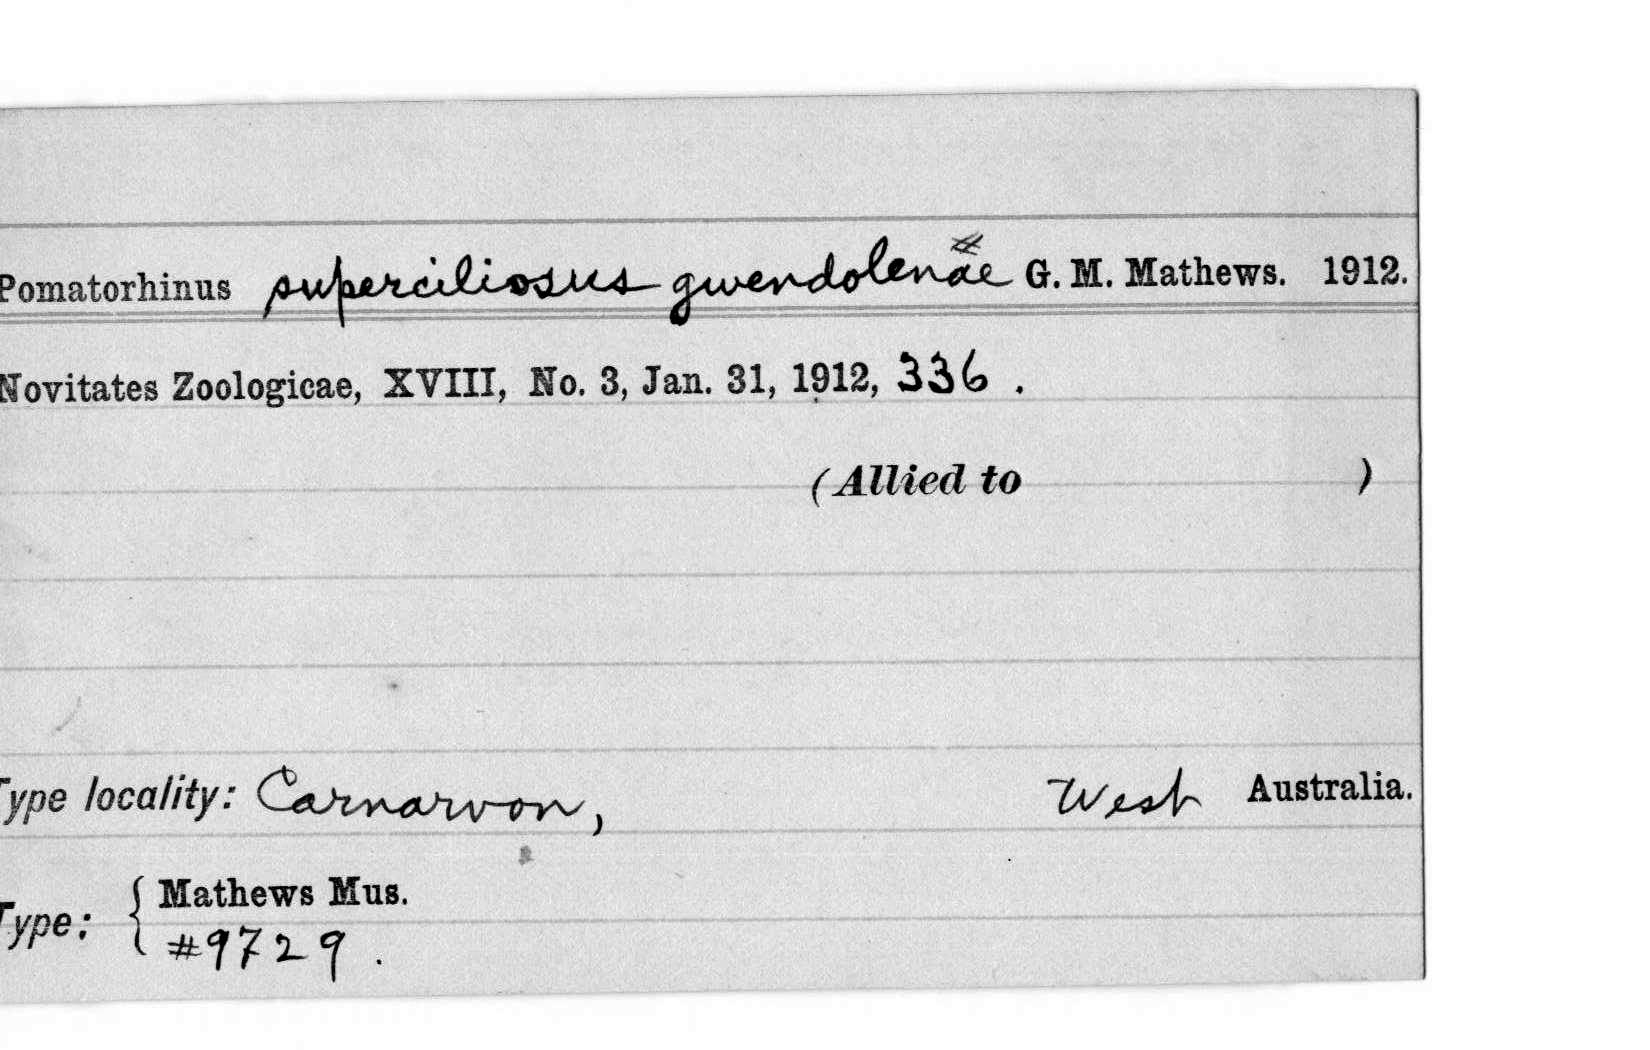 Pomatorhinus superciliosus gwendolenae G. M. Mathews. 1912.
Novitates Zoologicae, XVIII, No. 3, Jan. 31, 1912, 336.
(Allied to )
Type locality: Carnarvon, West Australia.
Type: { Mathews Mus.
#9729.